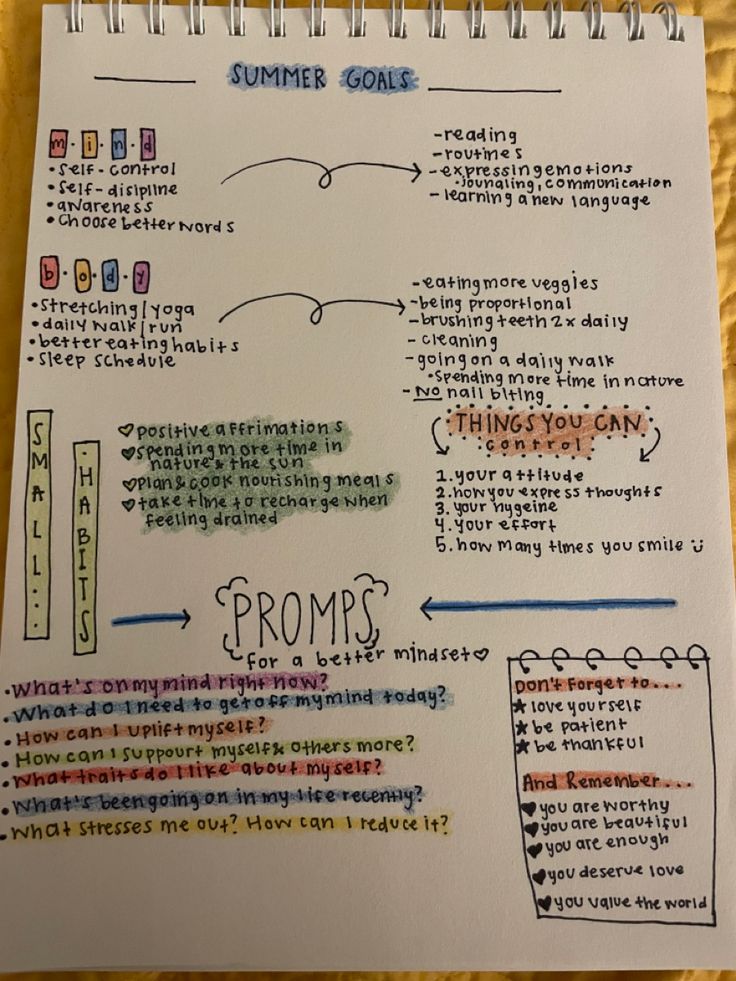 SUMMER GOALS
m.i.n.d
•self-control
•self-disipline
•awareness
•Choose better words
-reading
-routines
-expressing emotions
•Jounaling, communication
-learning a new language
b.o.d.y
•Stretching/yoga
•daily walk/run
•better eating habits
•Sleep schedule
-eating more veggies
-being proportional
-brushing teeth 2x daily
-cleaning
-going on a daily walk
•Spending more time in nature
-NO nail biting
SMALL...
.HABITS
♡positive affrimations
♡spending more time in
nature & the sun
♡plan & cook nourishing meals
♡take time to recharge when
feeling drained
THINGS YOU CAN
control
1. your attitude
2. how you express thoughts
3. your hygeine
4. your effort
5. how many times you smile ü
PROMPS
for a better mindset♡
•What's on my mind right now?
•What do I need to get off my mind today?
•How can I uplift myself?
•How can I suppourt myself & others more?
•What traits do I like about myself?
•What's been going on in my life recently?
•What stresses me out? How can I reduce it?
Don't Forget to...
★ love yourself
★ be patient
★ be thankful
And Remember...
♥you are worthy
♥you are beautiful
♥you are enough
♥you deserve love
♥you value the world